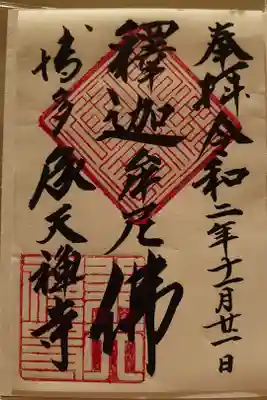 奉拝 令和二年十一月廿一日
釋迦牟尼佛
博多承天禅寺